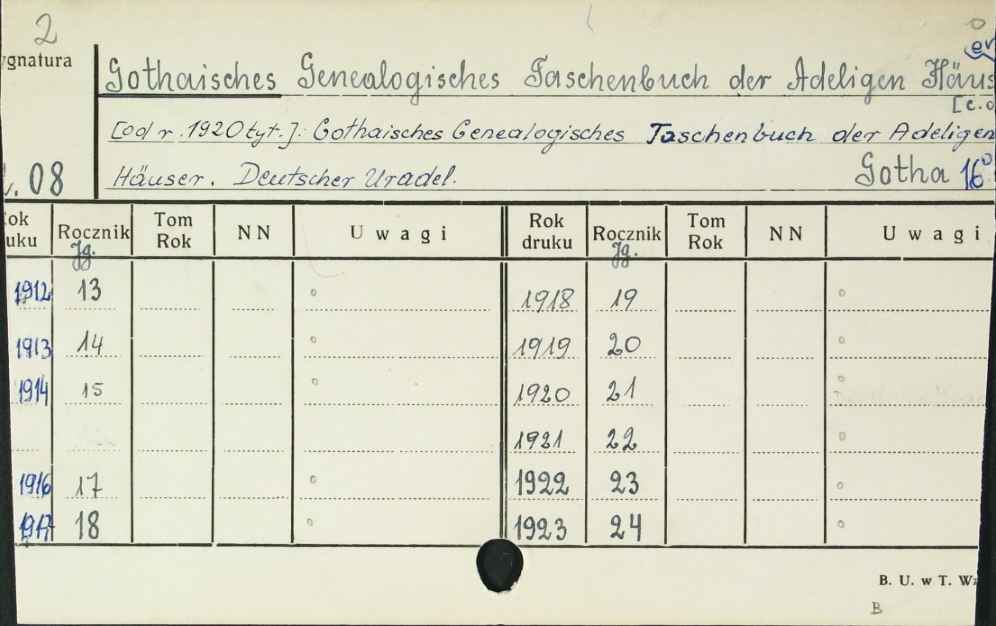 2
ygnatura
Gothaisches Genealogisches Taschenbuch der Adeligen Häus
er
[c.d
[od r. 1920 tyt.]: Gothaisches Genealogisches Taschenbuch der Adeligen
08 Häuser. Deutscher Uradel. Gotha 16°
ok uku Rocznik Jg. Tom Rok NN Uwagi Rok druku Rocznik Jg. Tom Rok NN Uwagi
1912 13 1918 19
1913 14 1919 20
1914 15 1920 21
1921 22
1916 17 1922 23
1917 18 1923 24
B. U. w T.
B